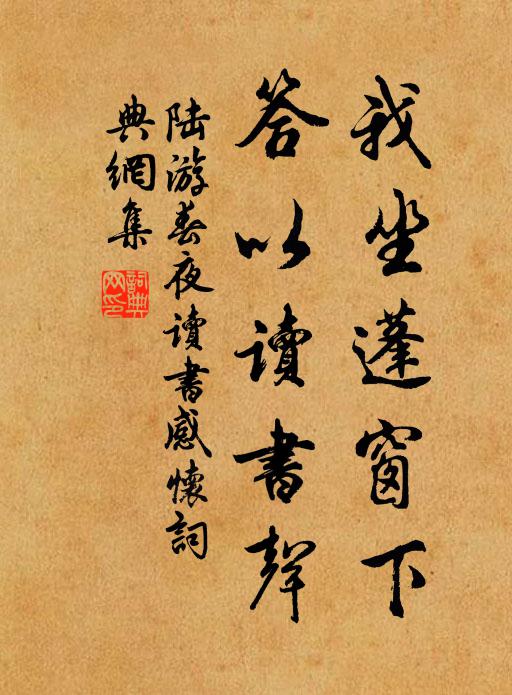 我坐蓬窗下
答以讀書聲
陆游春夜讀書感懷詞
典網集
詞典网印